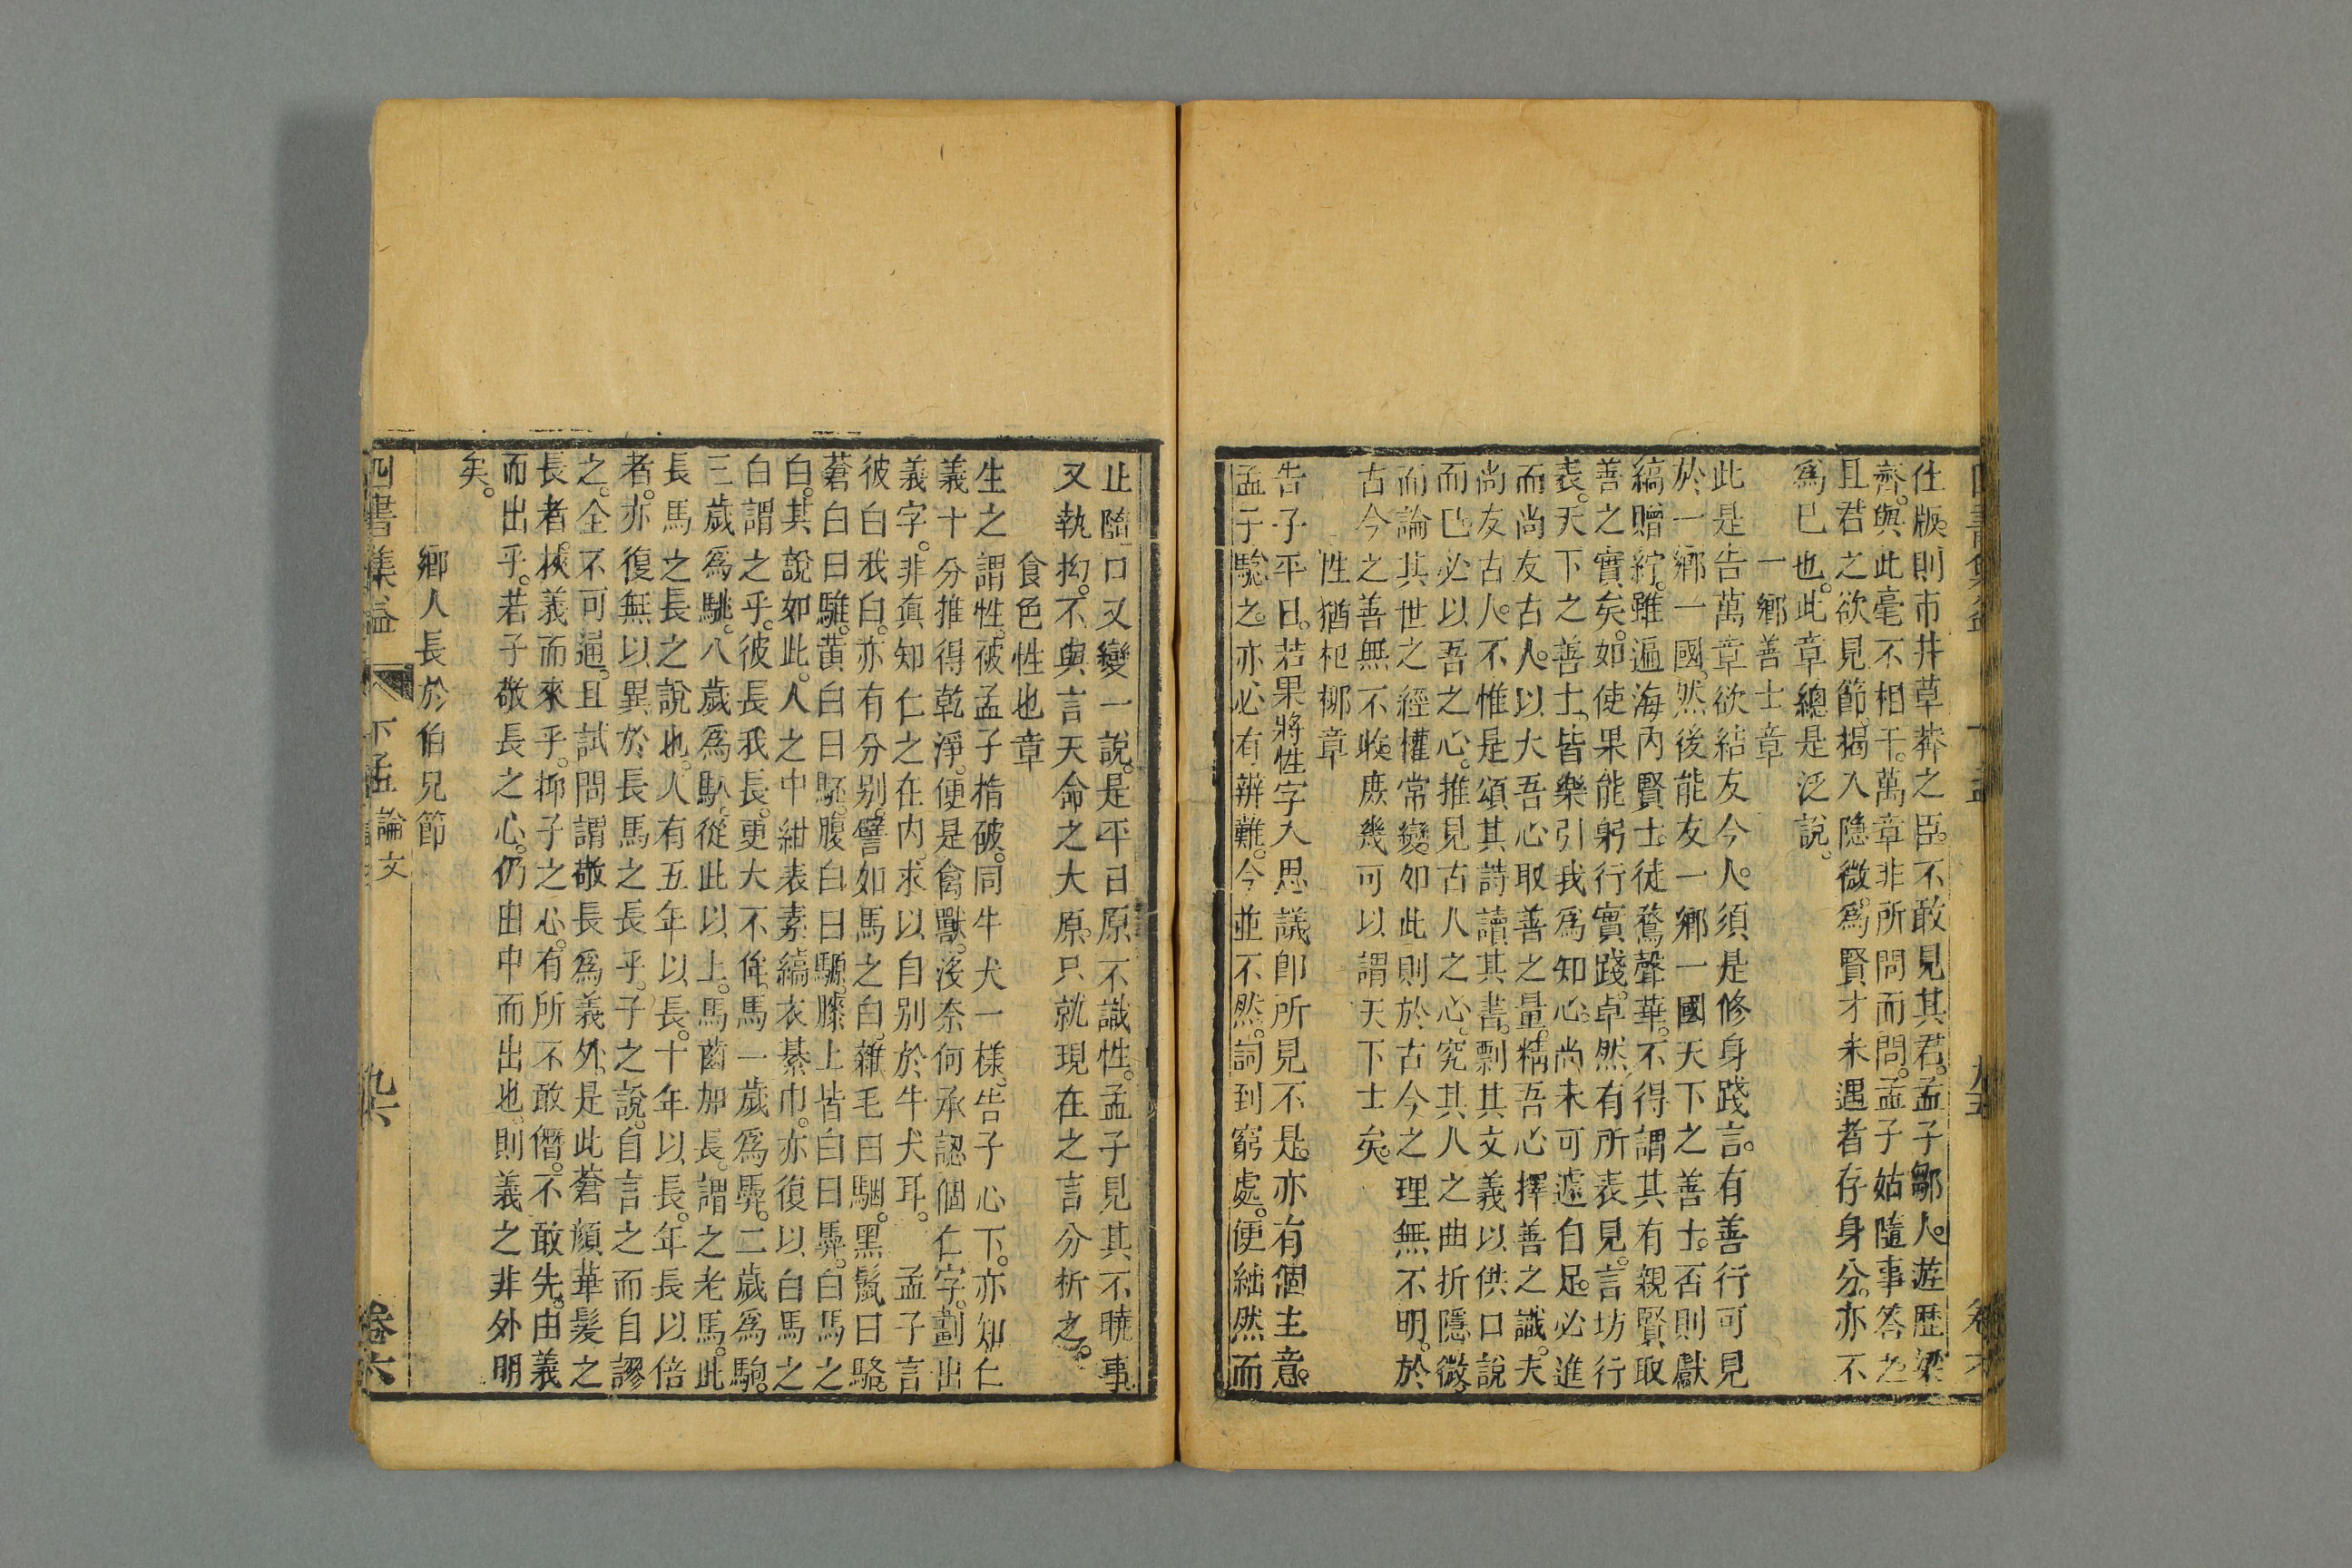 仕版則市井草莽之臣不敢見其君孟子鄒人遊歷梁
齊與此毫不相干萬章非所問而問孟子姑隨事答之
且君之欲見節揭入隱微爲賢才未遇者存身分亦不
爲已也此章總是泛說
一鄉善士章
此是告萬章欲結友今人須是修身踐言有善行可見
於一鄉一國然後能友一鄉一國天下之善士否則獻
縞贈紵雖遍海內賢士徒鶩聲華不得謂其有親賢取
善之實矣如使果能躬行實踐卓然有所表見言坊行
表天下之善士皆樂引我爲知心尚未可遽自足必進
而尚友古人以大吾心取善之量精吾心擇善之識夫
尚友古人不惟是頌其詩讀其書剽其文義以供口說
而已必以吾之心推見古人之心究其人之曲折隱微
而論其世之經權常變如此則於古今之理無不明於
古今之善無不收庶幾可以謂天下士矣
性猶杞柳章
告子平日若果將性字入思議即所見不是亦有個主意
孟子駁之亦必有辨難今並不然詞到窮處便絀然而
止隨口又變一說是平日原不識性孟子見其不曉事
又執拗不與言天命之大原只就現在之言分析之
食色性也章
生之謂性被孟子楷破同牛犬一樣告子心下亦知仁
義十分推得乾淨便是禽獸沒奈何承認個仁字劃出
義字非眞知仁之在內求以自別於牛犬耳 孟子言
彼白我白亦有分別譬如馬之白雜毛曰駰黑鬣曰駱
蒼白曰騅黃白曰駓腹白曰騵膝上皆白曰馵白馬之
白其說如此人之中紺表素縞衣綦巾亦復以白馬之
白謂之乎彼長我長更大不侔馬一歲爲馵二歲爲駒
三歲爲駣八歲爲馱從此以上馬齒加長謂之老馬此
長馬之長之說也人有五年以長十年以長年長以倍
者亦復無以異於長馬之長乎子之說自言之而自謬
之全不可通且試問謂敬長爲義外是此蒼顏華髮之
長者挾義而來乎抑子之心有所不敢僭不敢先由義
而出乎若子敬長之心仍由中而出也則義之非外明
矣
鄉人長於伯兄節
四書集益 下孟論文 九六 卷六